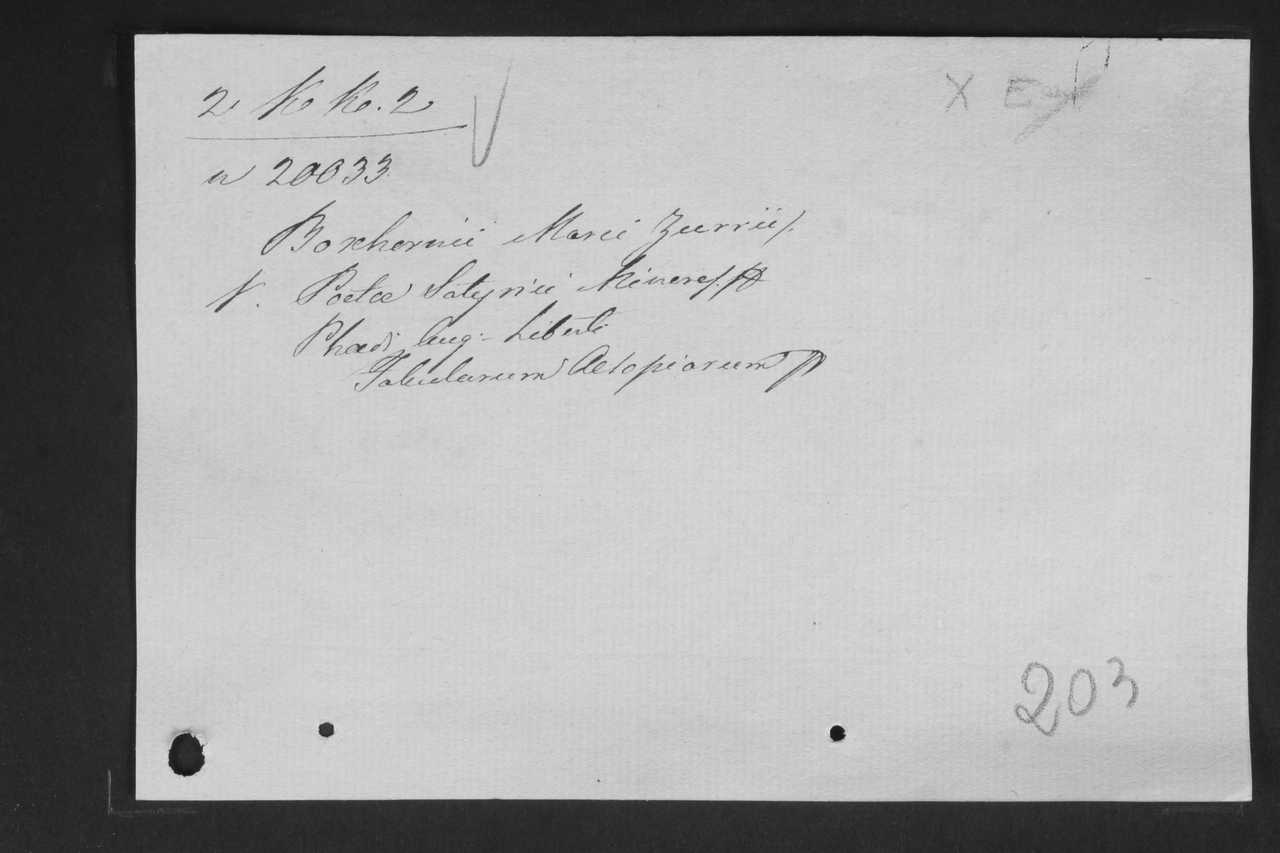 2 KK. 2
X E
n 20033
Boxhornii Marci Zuerrii
V. Poetæ Satyrici Minores
Phædi Aug. Liberti
Fabularum Aesopiarum
203